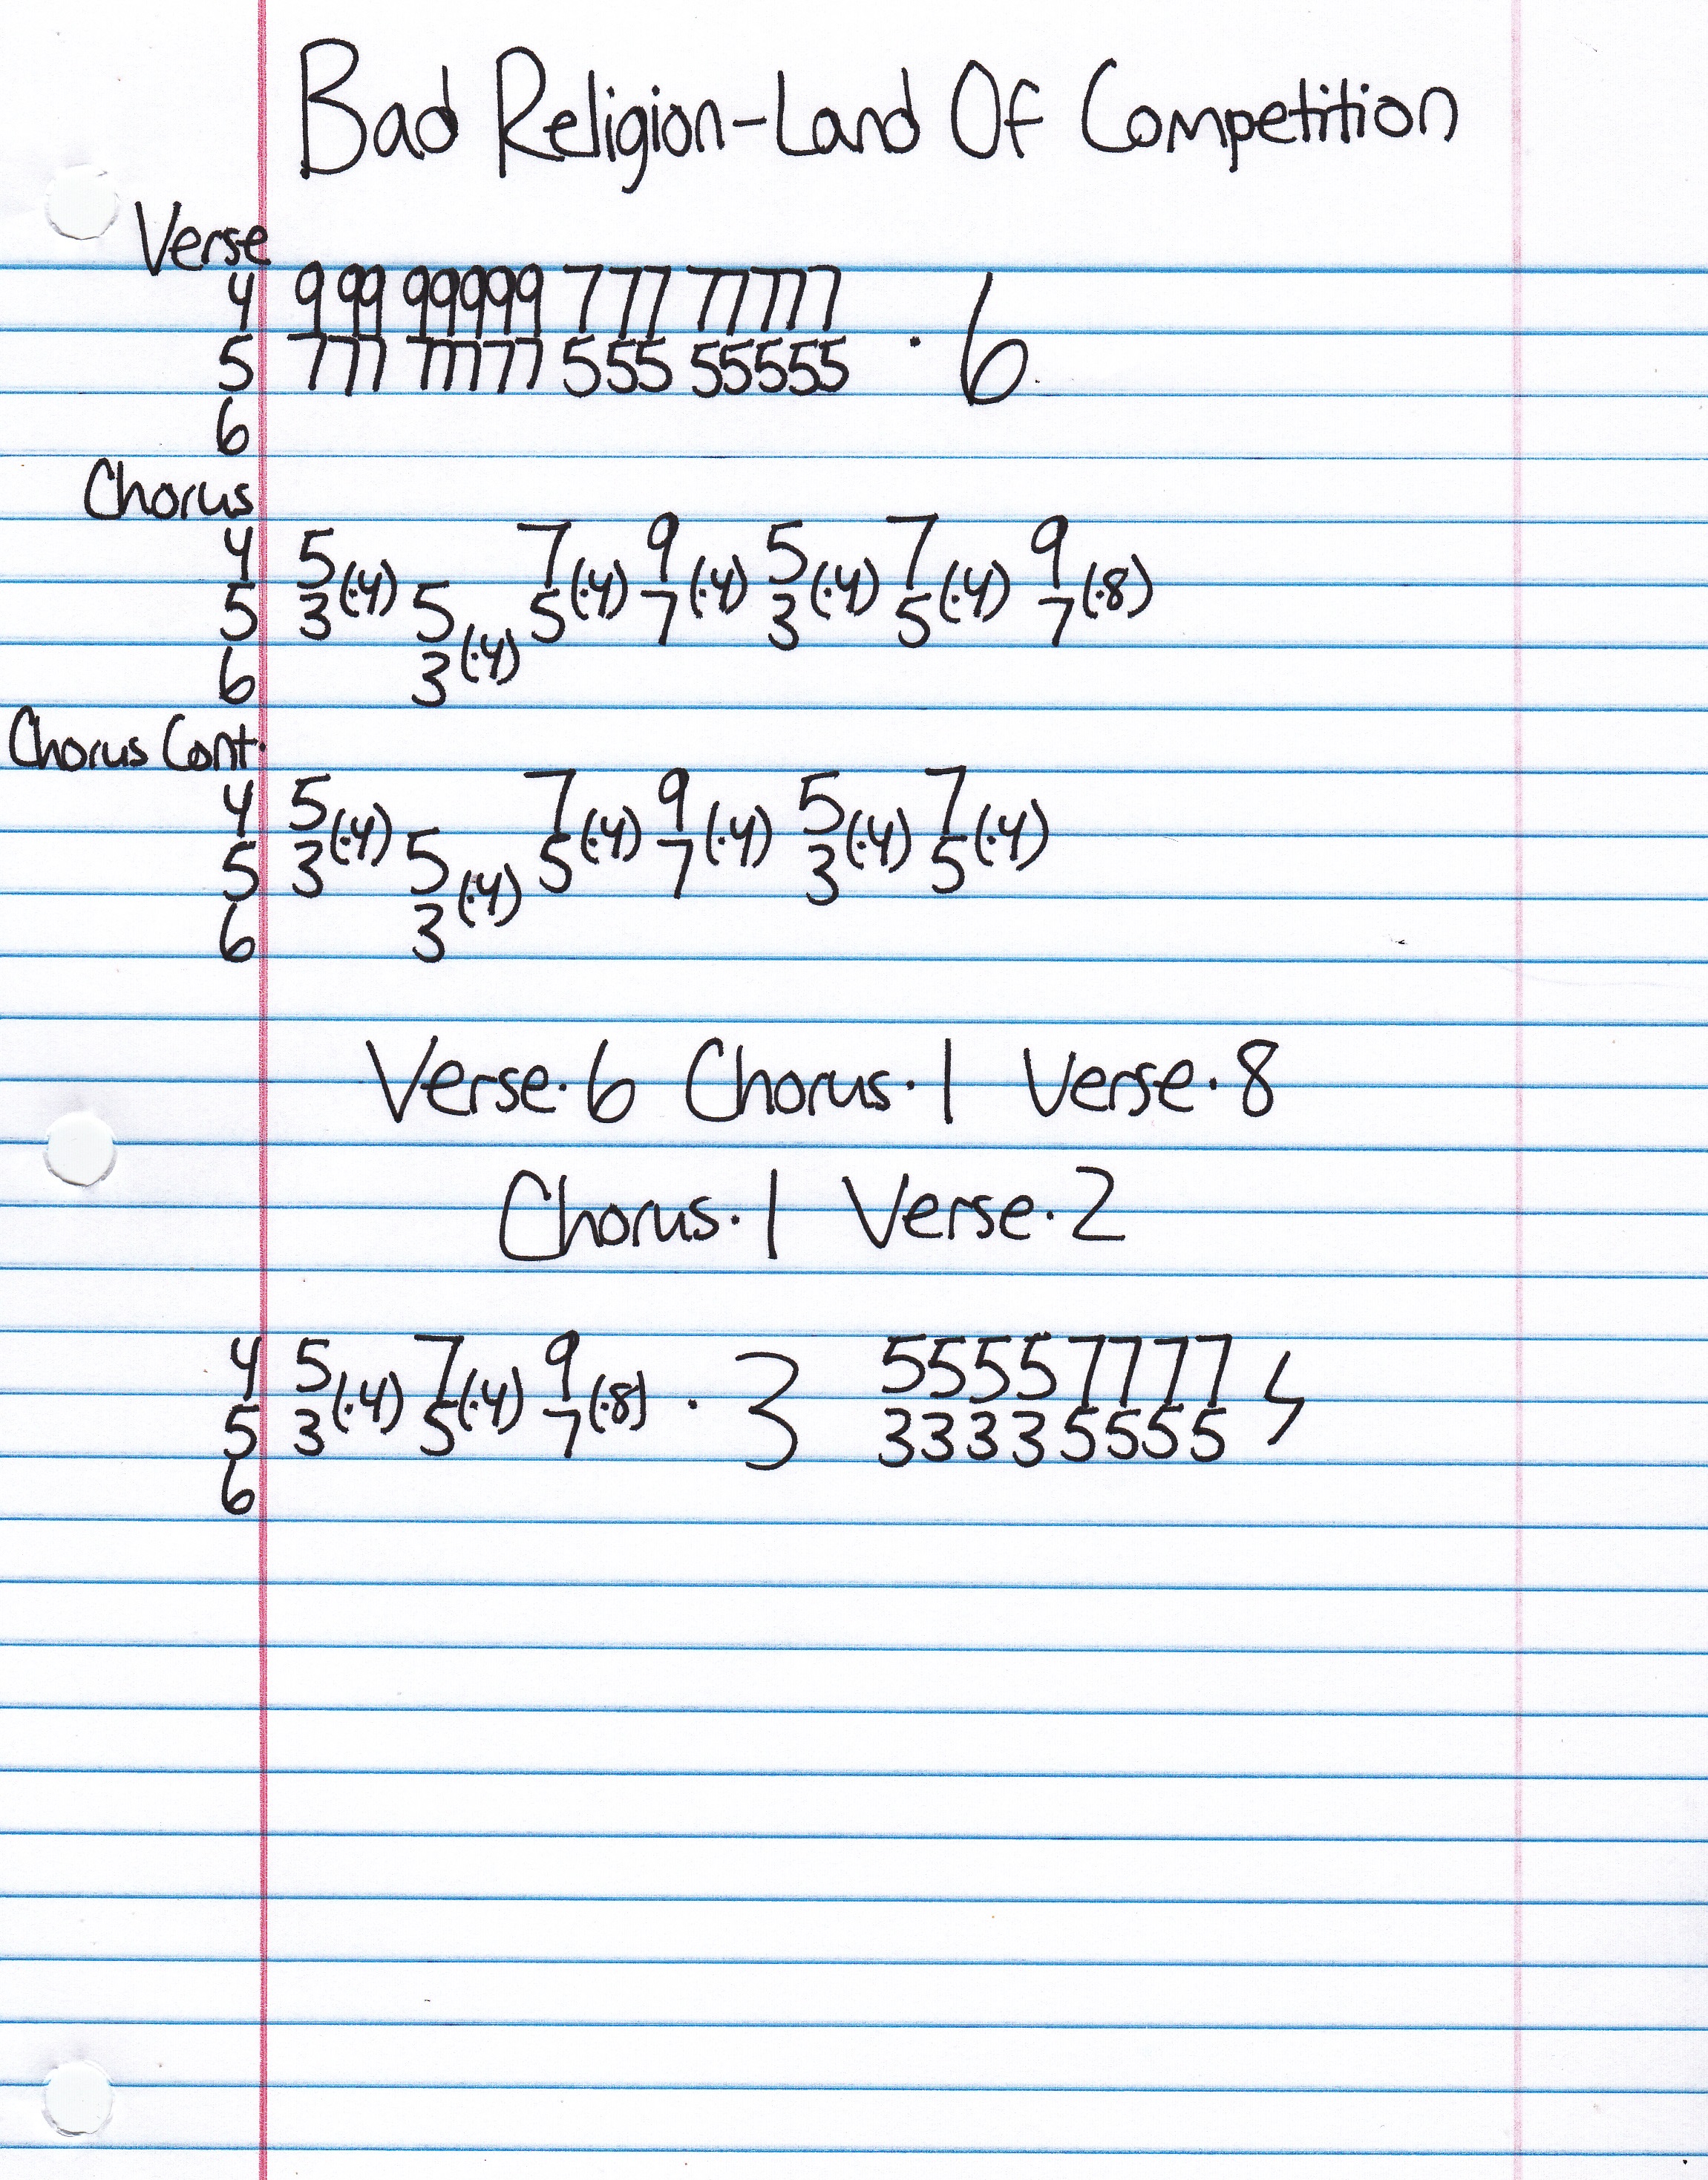 Bad Religion-Land Of Competition
Verse
4 9 99 99999 777 77777
5 777 77777 555 55555 · 6
6
Chorus
4 5 7 9 5 7 9
5 3(·4) 5 5(·4) 7(·4) 3(·4) 5(·4) 7(·8)
6 3(·4)
Chorus Cont.
4 5 7 9 5 7
5 3(·4) 5 5(·4) 7(·4) 3(·4) 5(·4)
6 3(·4)
Verse·6 Chorus·1 Verse·8
Chorus·1 Verse·2
4 5 7 9 55557777
5 3(·4) 5(·4) 7(·8) · 3 33335555
6